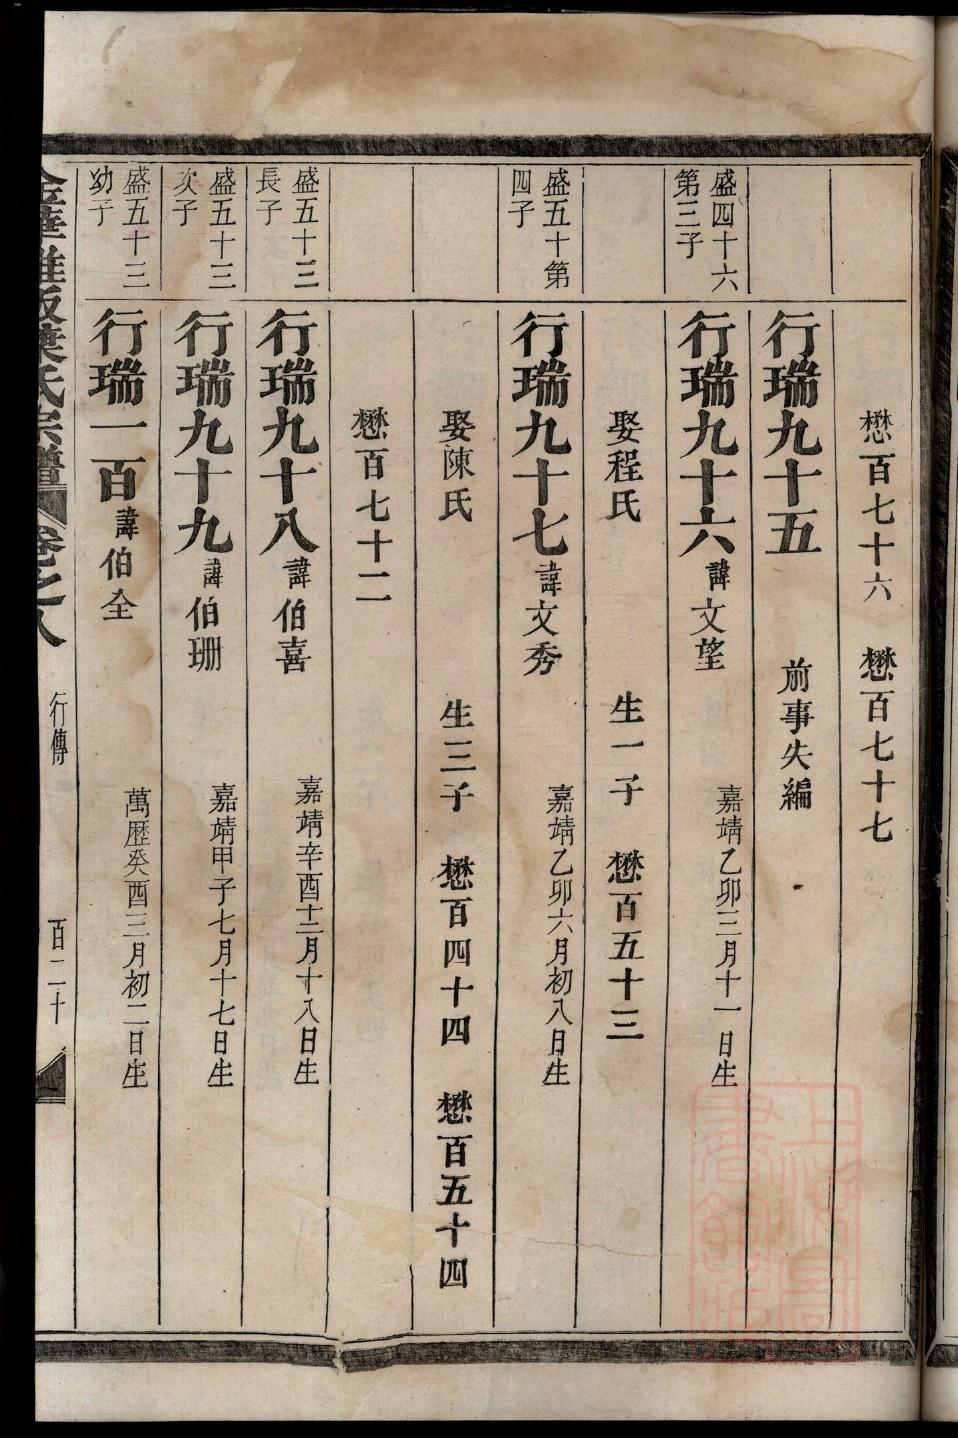 懋百七十六　懋百七十七
行瑞九十五　前事失編
盛四十六
第三子
行瑞九十六　諱文望　嘉靖乙卯三月十一日生
娶程氏　生一子　懋百五十三
盛五十第
四子
行瑞九十七　諱文秀　嘉靖乙卯六月初八日生
娶陳氏　生三子　懋百四十四　懋百五十四
懋百七十二
盛五十三
長子
行瑞九十八　諱伯喜　嘉靖辛酉十二月十八日生
盛五十三
次子
行瑞九十九　諱伯珊　嘉靖甲子七月十七日生
盛五十三
幼子
行瑞一百　諱伯全　萬歷癸酉三月初二日生
葉氏宗譜　卷之八　行傳　百二十